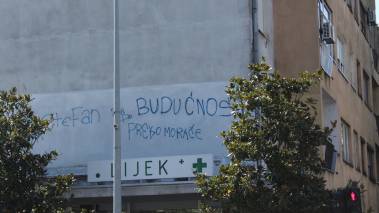 STEFAN BUDUĆNOS
PREKO MORAČE
LIJEK +